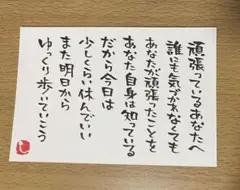 頑張っているあなたへ
誰にも気づかれなくても
あなたが頑張ったことを
あなた自身は知っている
だから今日は
少しくらい休んでいい
また明日から
ゆっくり歩いていこう